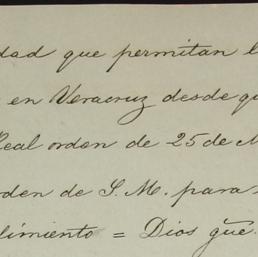 dad que permitan l
en Veracruz desde qu
Real orden de 25 de M
rden de S. M. para
limiento = Dios gue.